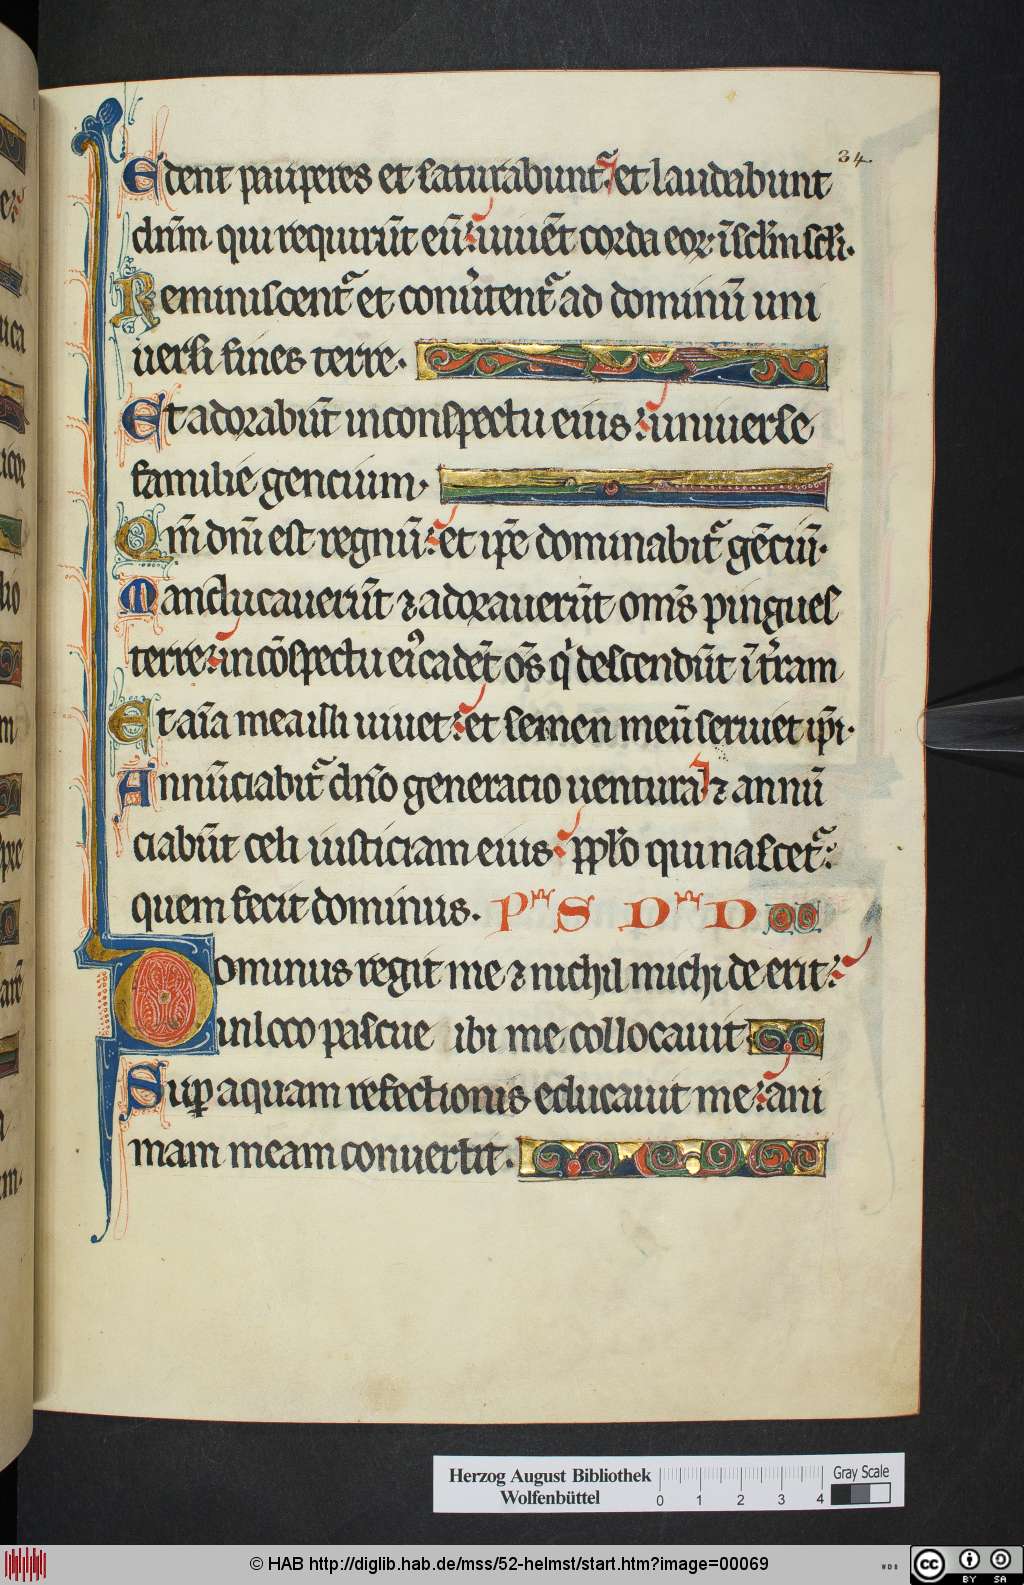 34
Edent pauperes et saturabunt᷑ et laudabunt
dn̄m qui requirūt eū: uiuēt corda eoꝝ ī sc̄lm sc̄li.
Reminiscent᷑ et conu̓tent᷑ ad dominū uni
uersi fines terre.
Et adorabūt in conspectu eius: uniuerse
familie gencium.
Qm̄ dn̄i est regnū: et ip̄e dominabit᷑ gēciū.
Manducauerūt ⁊ adorauerūt om̄s pingues
terre: in cōspectu ei᷒ cadēt om̄s qͥ descendūt ī t̓ram
Et aīa mea illi uiuet: et semen meū seruiet ip̄i.
Annūciabit᷑ dn̄o generacio uentura ⁊ annū
ciabūt celi iusticiam eius: pplo qui nascet᷑:
quem fecit dominus. Pᵐˢ D D
Dominus regit me ⁊ nichil michi de erit:
in loco pascue ibi me collocauit
Suꝑ aquam refectionis educauit me: ani
mam meam conuertit.
Herzog August Bibliothek
Wolfenbüttel
0 1 2 3 4
Gray Scale
© HAB http://diglib.hab.de/mss/52-helmst/start.htm?image=00069
cc BY SA